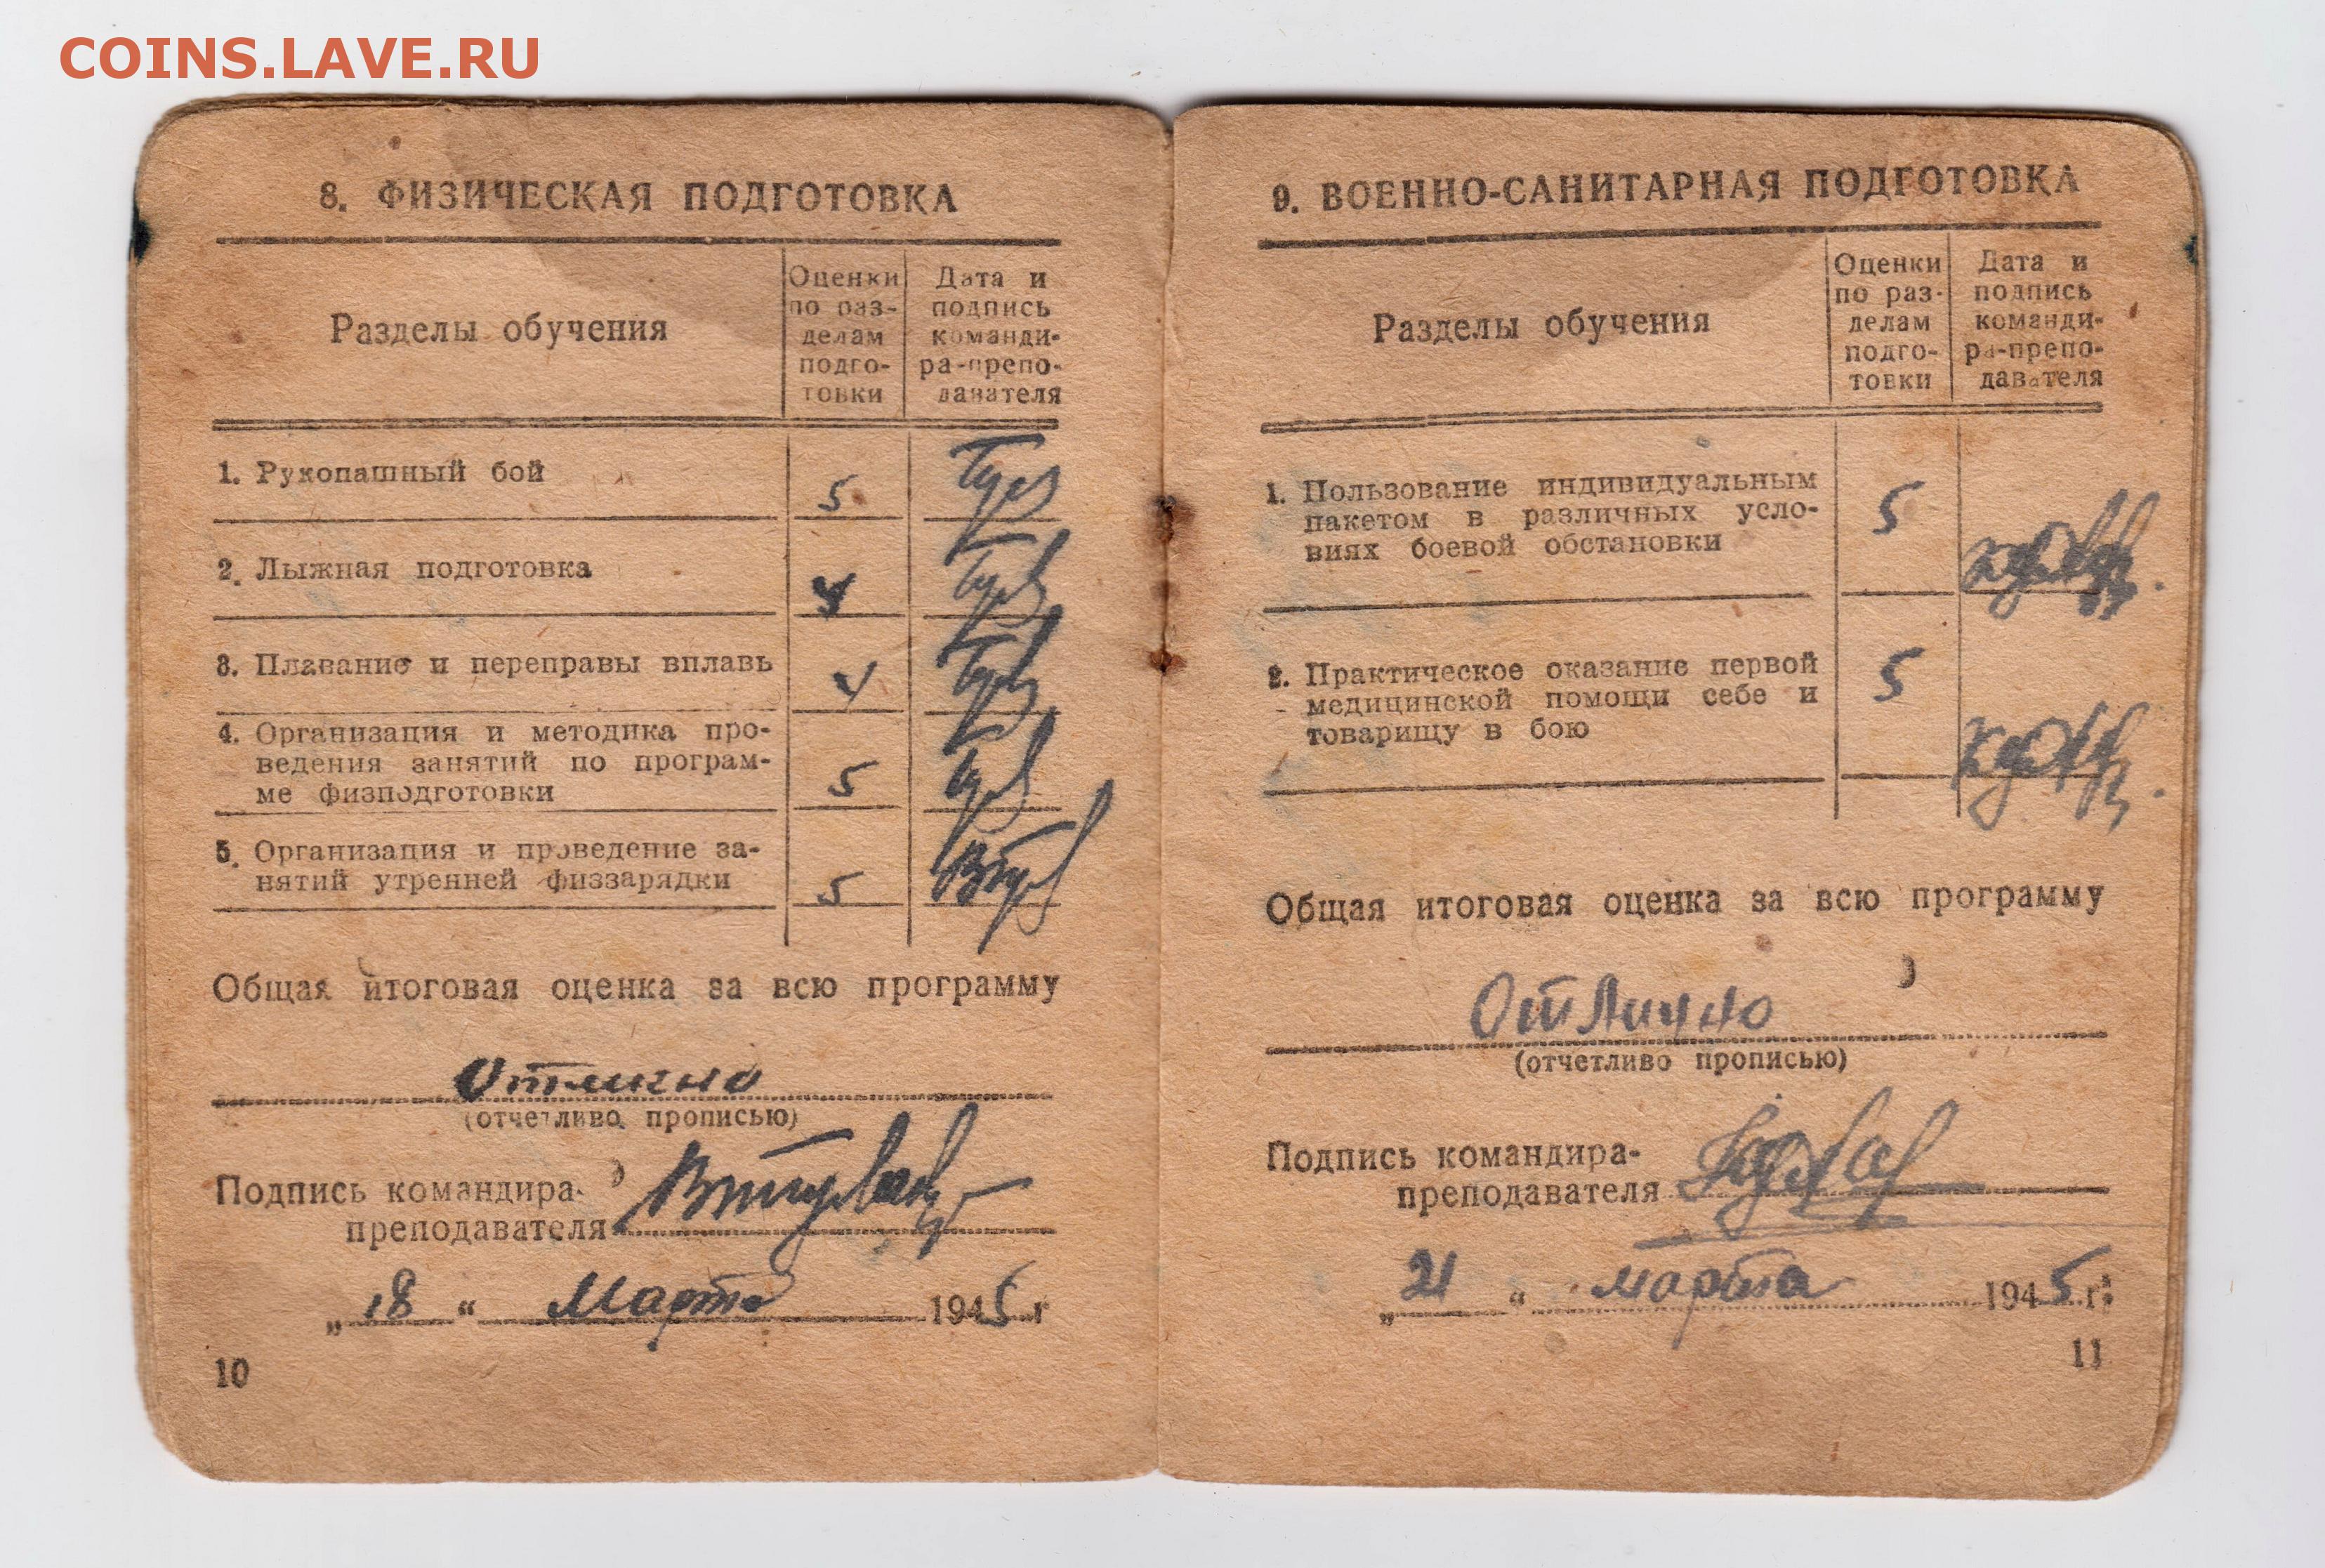 COINS.LAVE.RU
8. ФИЗИЧЕСКАЯ ПОДГОТОВКА
Разделы обучения
Оценки
по раз-
делам
подго-
товки
Дата и
подпись
команди-
ра-препо-
давателя
1. Рукопашный бой
5
2. Лыжная подготовка
4
3. Плавание и переправы вплавь
4
4. Организация и методика про-
ведения занятий по програм-
ме физподготовки
5
5. Организация и проведение за-
нятий утренней физзарядки
5
Общая итоговая оценка за всю программу
Отлично
(отчетливо прописью)
Подпись командира-
преподавателя
„18“ Марта 1945 г
10
9. ВОЕННО-САНИТАРНАЯ ПОДГОТОВКА
Разделы обучения
Оценки
по раз-
делам
подго-
товки
Дата и
подпись
команди-
ра-препо-
давателя
1. Пользование индивидуальным
пакетом в различных усло-
виях боевой обстановки
5
2. Практическое оказание первой
медицинской помощи себе и
товарищу в бою
5
Общая итоговая оценка за всю программу
Отлично
(отчетливо прописью)
Подпись командира-
преподавателя
„21“ марта 1945 г.
11